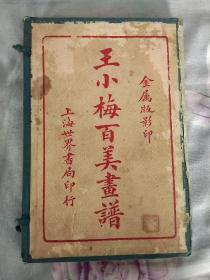 金属版影印
王小梅百美畫譜
上海世界書局印行